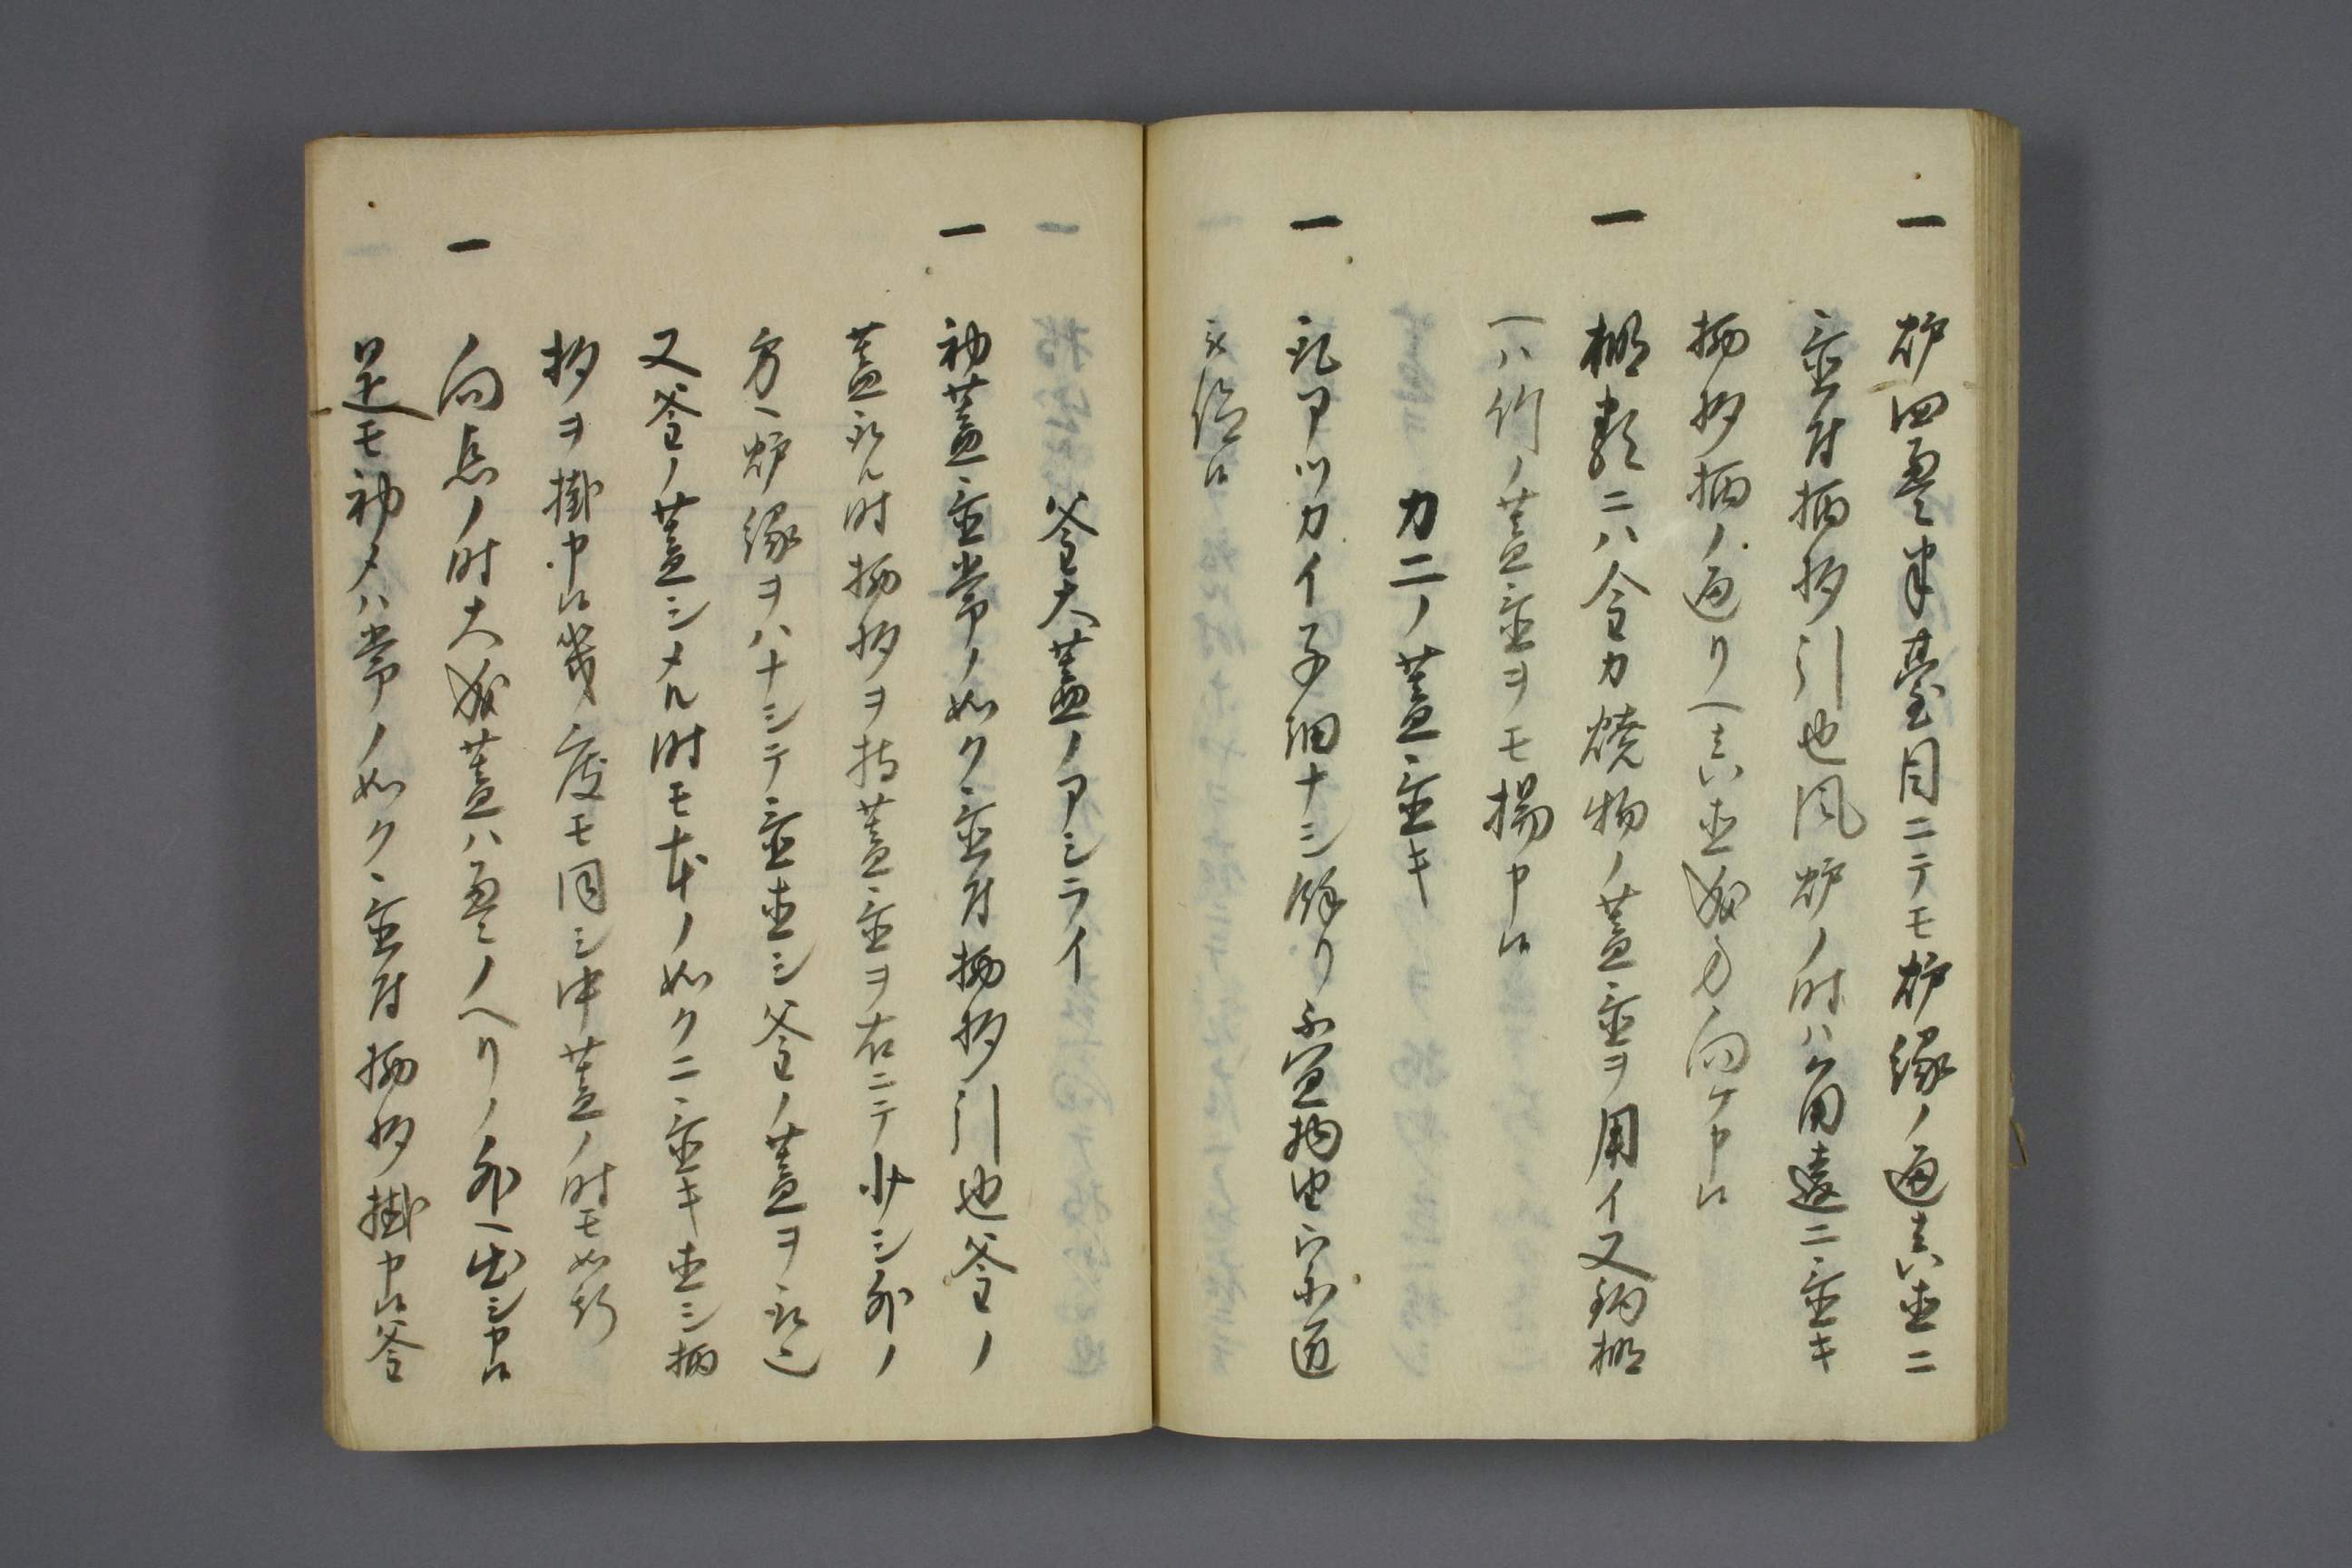 一 炉四畳半臺目ニテモ炉縁ノ通真直ニ
置付柄杓引也風炉ノ時ハ角違ニ置キ
柄杓柄ノ通リヘ真直成方向ケ申候
一 棚類ニハ金カ焼物ノ蓋置ヲ用イ又釣棚
ヘハ竹ノ蓋置ヲモ揚申候
カニノ蓋置キ
一 乱アツカイ子細ナシ餘リ不宜物由
候
釜大蓋ノアシライ
一 初蓋置常ノ如ク置付柄杓引也釜ノ
蓋取ル時柄杓ヲ持蓋置ヲ右ニテ少シ外ノ
方ヘ炉縁ヲハナシテ置直シ釜ノ蓋ヲ取也
又釜ノ蓋シメル時モ本ノ如クニ置キ直シ柄
杓ヲ掛申候幾度モ同シ中蓋ノ時モ如斯
一 向点ノ時大成蓋ハ畳ノヘリノ外ヘ出シ申候
是モ初メハ常ノ如ク置付柄杓掛申候釜